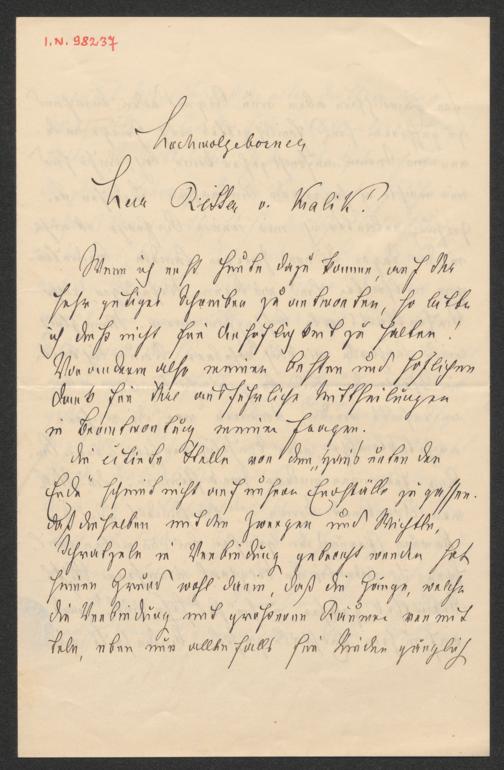 I.N. 98237
Hochwolgeborner
Herr Ritter v. Kralik!
Wenn ich erst heute dazu komme, auf Ihr
sehr gütiges Schreiben zu antworten, so bitte
ich dieß nicht für Unhöflichkeit zu halten!
Vor anderm also meinen besten und höflichen
Dank für Ihre ausführliche Mittheilungen
in Beantwortung meiner Fragen.
Die citierte Stelle von dem „Haus unter der
Erde" scheint nicht auf unsere Erdställe zu passen.
Daß dieselben mit den Zwergen und Wichtln,
Schratzeln in Verbindung gebracht werden hat
seinen Grund wohl darin, daß die Gänge, welche
die Verbindung mit größeren Räumen vermit
teln, eben nur allenfalls für Kinder gänglich